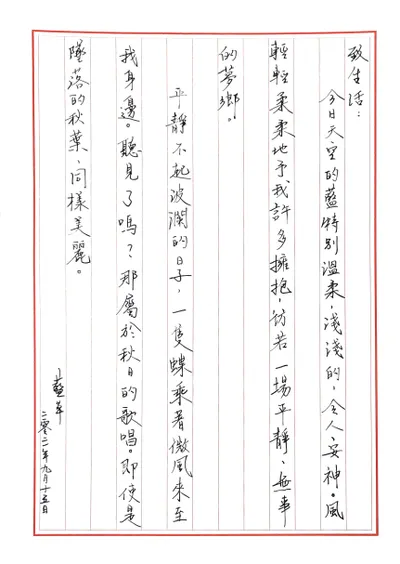 致生活：
今日天空的藍特別溫柔，淺淺的，令人安神。風
輕輕柔柔地予我許多擁抱，彷若一場平靜、無事
的夢鄉。
平靜不起波瀾的日子，一隻蝶乘著微風來至
我身邊。聽見了嗎？那屬於秋日的歌唱。即使是
墜落的秋葉，同樣美麗。
藍萍
二零二二年九月十五日